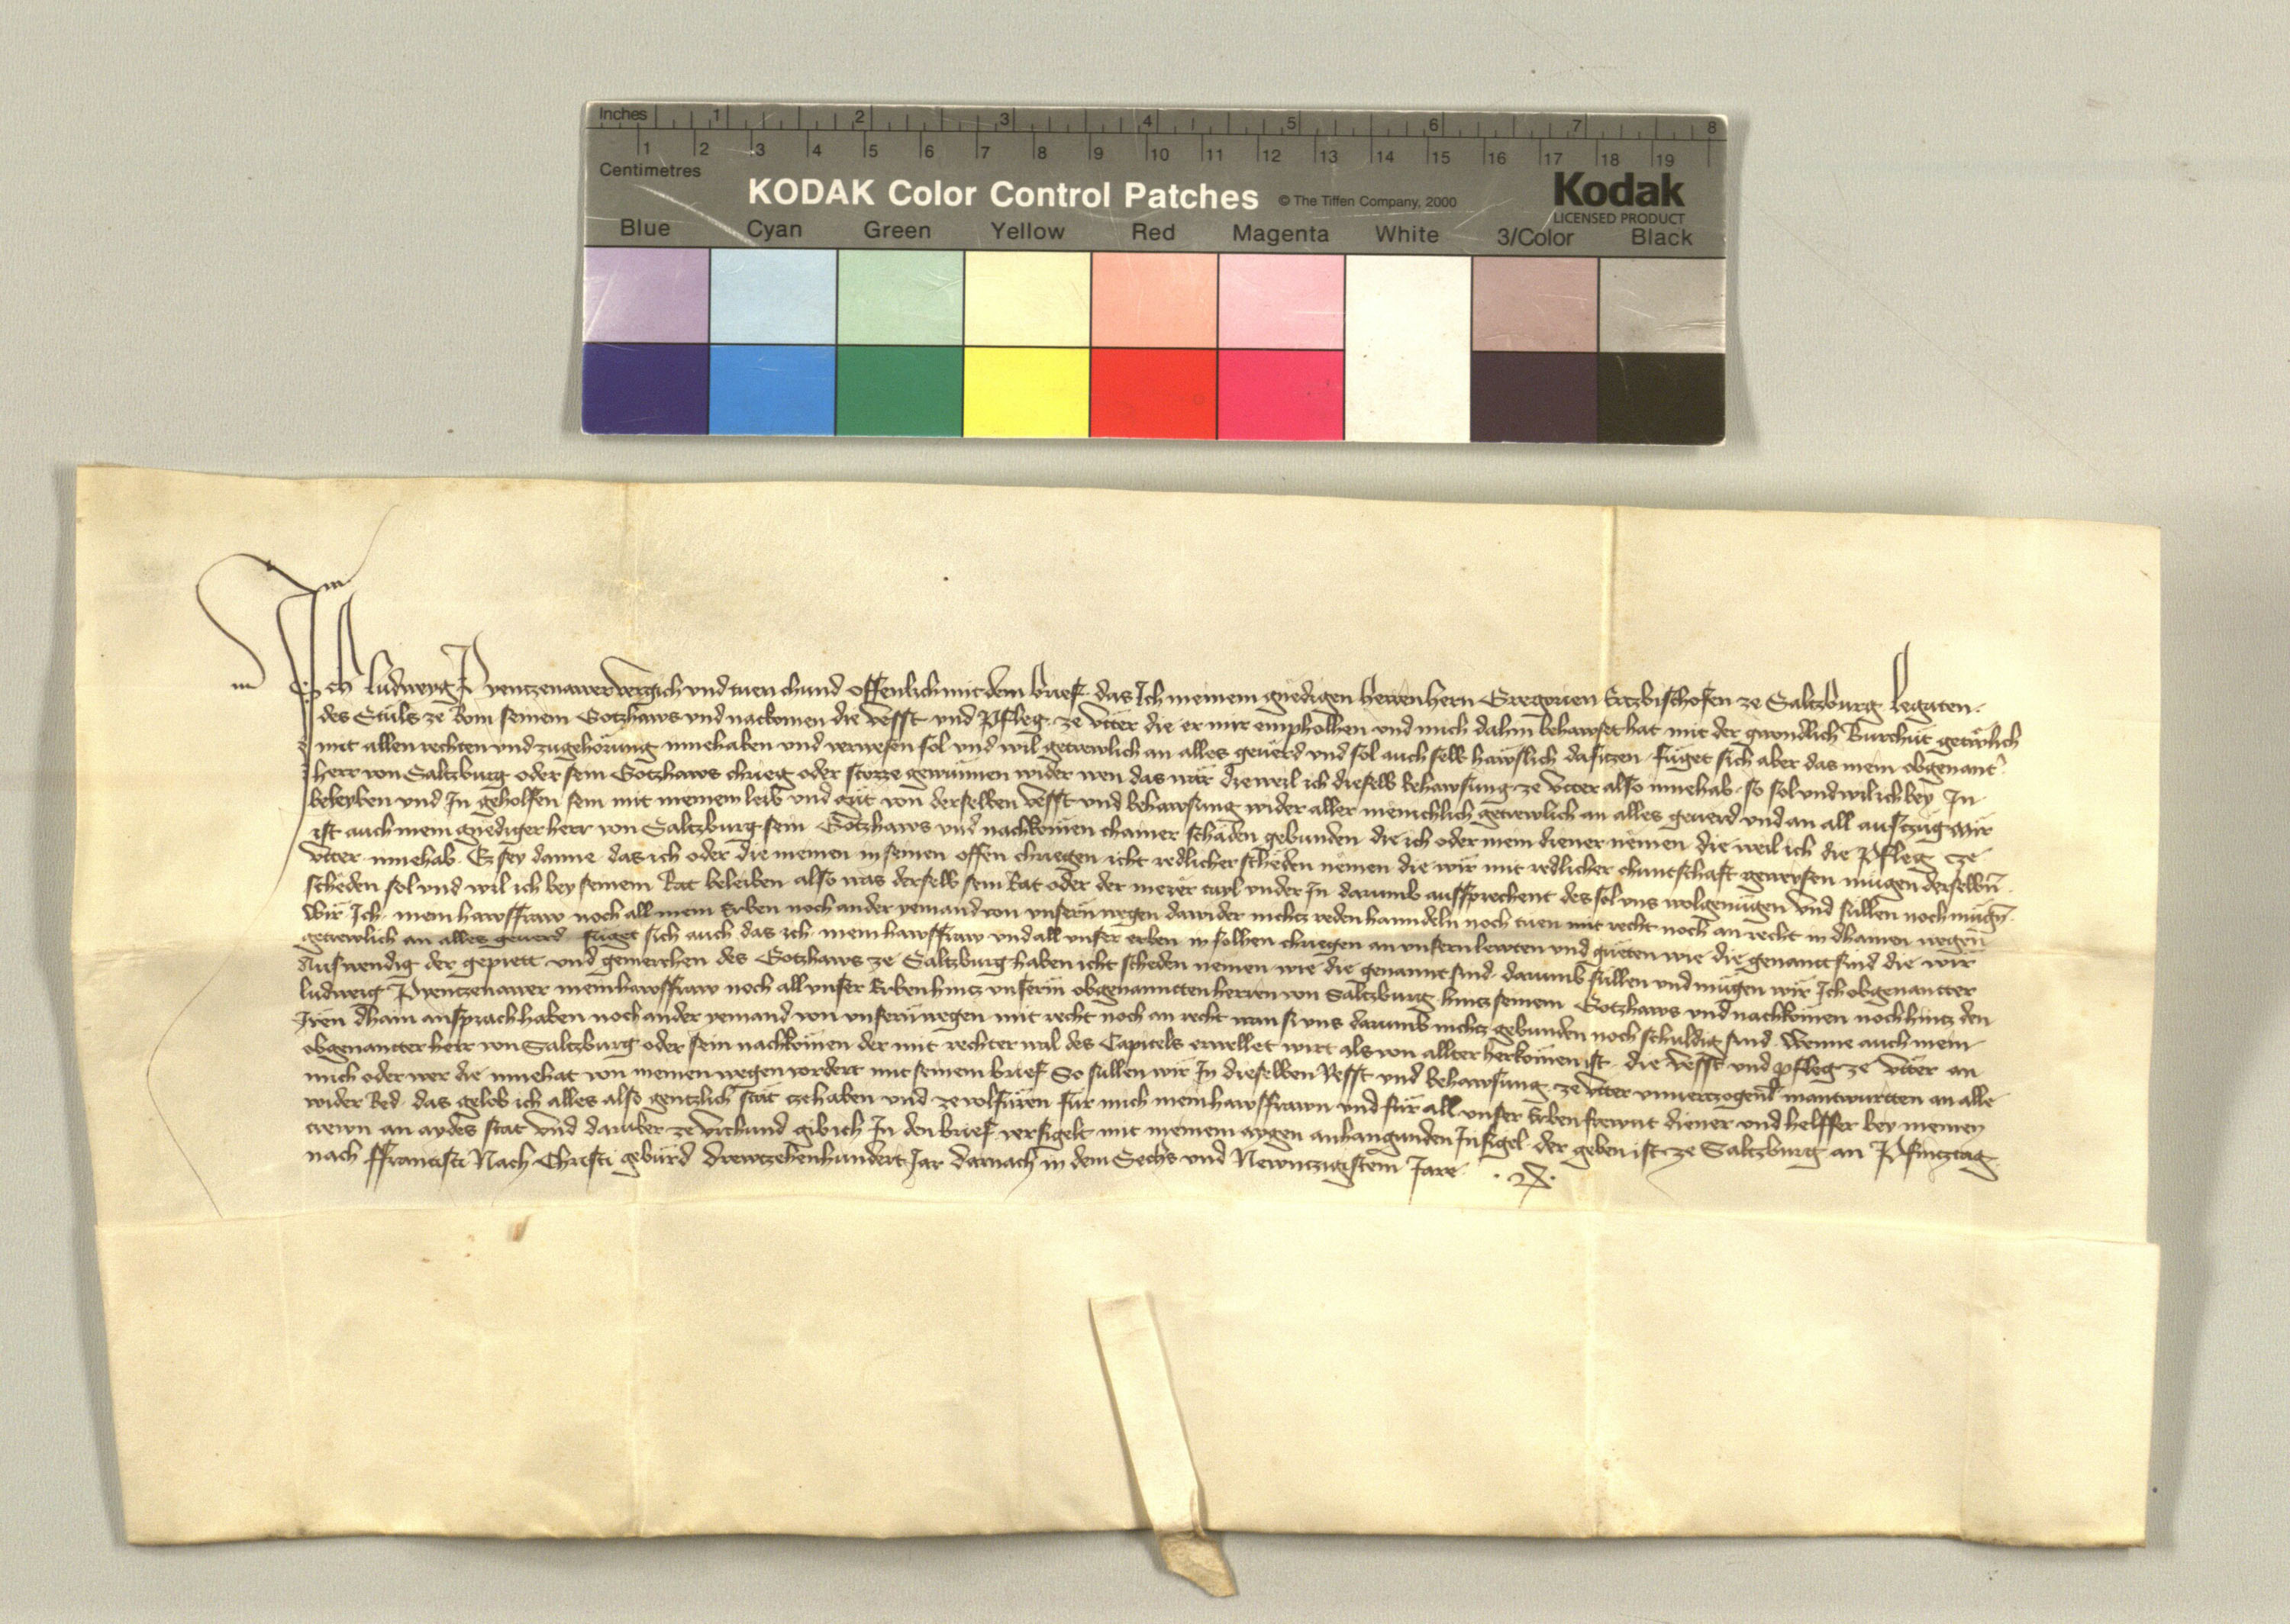 Inches 1 2 3 4 5 6 7 8
1 2 3 4 5 6 7 8 9 10 11 12 13 14 15 16 17 18 19
Centimetres
KODAK Color Control Patches © The Tiffen Company, 2000 Kodak
LICENSED PRODUCT
Blue Cyan Green Yellow Red Magenta White 3/Color Black
Ich Ludweyg Pyentzenawer vergich und tuen chund offenlich mit dem brief das Ich meinem gnedigen herren hern Gregorien Ertzbischofen ze Saltzburg Legaten
des Stuls ze Rom seinem Gotzhaws und nackomen die vesst und Pfleg ze Vtter die er mir empholhen und mich dahin behawset hat mit der gwondlich Burchut getrwlich
mit allen rechten und zugehorung innehaben und verwesen sol und wil getrewlich an alles geuerd und sol auch selb hawslich da siczen fuget sich aber das mein obgenant
herr von Saltzburg oder sein Gotzhaws chrieg oder stozze gewunnen wider wen das wär dieweil ich dieselb behawsung ze Vtter also innehab so sol und wil ich bey In
beleyben und In geholfen sein mit meinem leib und gut von derselben vesst und behawsung wider aller menichlich getrewlich an alles geuerd und an all auszug Mir
ist auch mein gnediger herr von Saltzburg sein Gotzhaws und nachkomen chainer schaden gebunden die ich oder mein diener nemen die weil ich die Pfleg cze
Vtter innehab Ez sey danne das ich oder die meinen in seinen offen chriegen icht redlicher scheden nemen die wir mit redlicher chuntschaft geweysen mugen derselbn
scheden sol und wil ich bey seinem Rat beleiben also was derselb sein Rat oder der merer tayl under In darumb aussprechent des sol uns wolgenugen und sullen noch mugn
wir Ich mein hawsfraw noch all mein Erben noch ander yemand von unsern wegen dawider nichtz reden hanndeln noch tuen mit recht noch an recht in dhainen wegen
getrewlich an alles geuerd fuget sich auch das ich mein hawsfraw und all unser erben in solhen chriegen an unsern lewten und gueten wie die genantt sind die wir
Auswendig der gepiett und gemerchen des Gotzhaws ze Saltzburg haben icht scheden nemen wie die genannt sind darumb sullen und mugen wir Ich obgenantter
ludweig Pyentzenawer mein hawsfraw noch all unser Erben hintz unserm obgenanntten herren von Saltzburg hintz seinem Gotzhaws und nachkomen noch hintz den
Iren dhain ansprach haben noch ander yemand von unsern wegen mit recht noch an recht wan si uns darumb nichtz gebunden noch schuldig sind Wenne auch mein
obgenantter herr von Saltzburg oder sein nachkomen der mit rechter wal des Capitels erwellet wirt als von allter herkomen ist die vesst und pfleg ze Vtter an
mich oder wer die innehat von meinen wegen vordert mit seinem brief So sullen wir In dieselben Vesst und behawsung ze Vtter unuerczogenl inantwurtten an alle
wider Red das gelob ich alles also genczlich stät cze haben und ze volfuren fur mich mein hawsfrawn und fur all unser Erben frewnt diener und helffer bey meinen
trewn an aydes stat Und daruber ze Urchund gib ich In den brief versigelt mit meinem aygen anhangunden Insigel der geben ist ze Saltzburg an Pfincztag
nach ffrancisci Nach Christi geburd drewczehenhundert Jar darnach in dem Sechs und Newnczigistem Jare